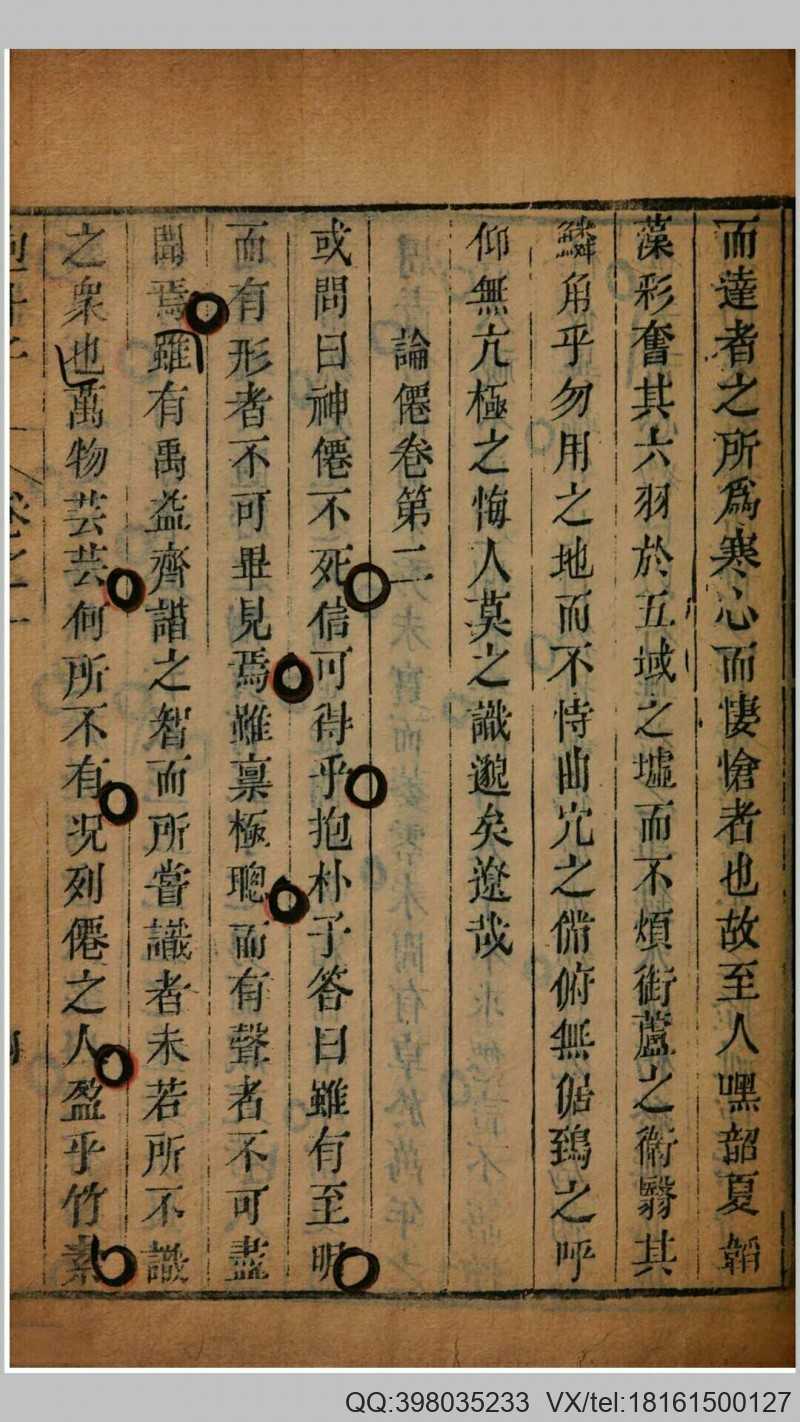 而達者之所爲寒心而悽愴者也故至人嘿韶夏韜
藻彩奮其六羽於五城之墟而不煩銜蘆之衛翳其
鱗角乎勿用之地而不恃曲穴之備俯無倨鵄之呼
仰無亢極之悔人莫之識邈矣遼哉
論僊卷第二
或問曰神僊不死信可得乎抱朴子答曰雖有至明
而有形者不可畢見焉雖稟極聰而有聲者不可盡
聞焉雖有禹益齊諧之智而所嘗識者未若所不識
之衆也萬物芸芸何所不有况列僊之人盈乎竹素
QQ:398035233 VX/tel:18161500127